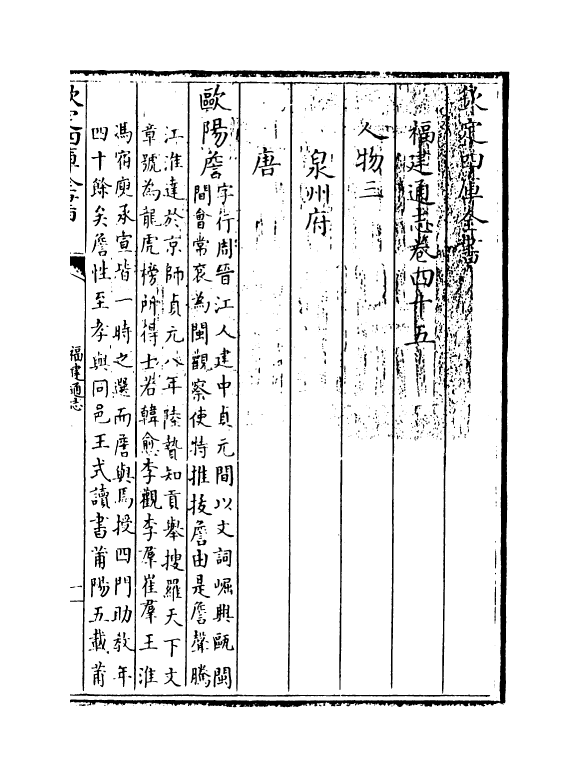 欽定四庫全書
福建通志卷四十五
人物三
泉州府
唐
歐陽詹字行周晉江人建中貞元間以文詞崛興甌閩
間會常衮為閩觀察使特推技詹由是詹聲騰
江淮達於京師貞元八年陸贄知貢舉搜羅天下文
章號為龍虎榜所得士若韓愈李觀李羣崔羣王淮
馮宿庾承宣皆一時之選而詹與焉授四門助教年
四十餘矣詹性至孝與同邑王式讀書莆陽五載莆
欽定四庫全書
福建通志
一